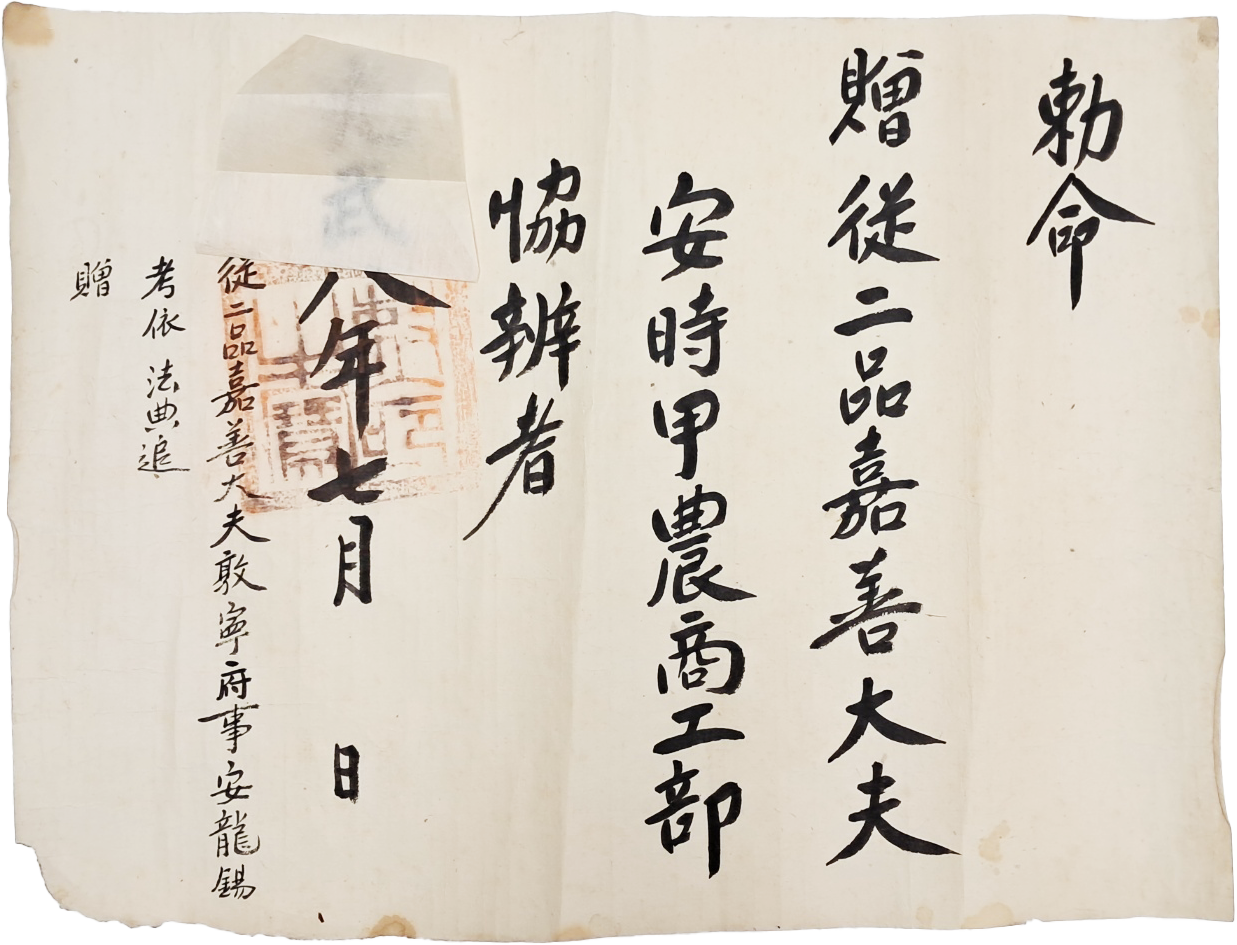 勅命
贈從二品嘉善大夫
安時甲農商工部
恊辨者
武八年七月 日
從二品嘉善大夫敦寧府事安龍錫
考依 法典追
贈